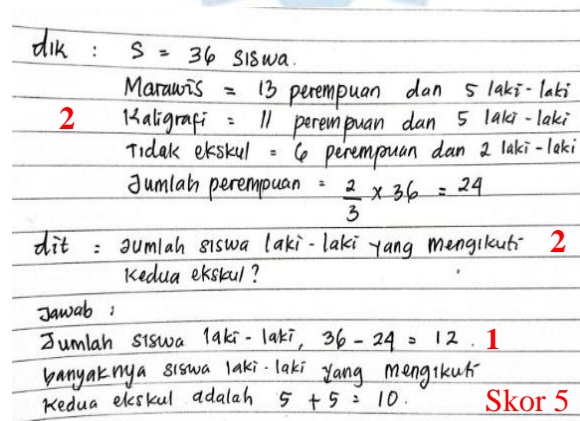 dik : S = 36 siswa.
Marawis = 13 perempuan dan 5 laki-laki
2 Kaligrafi = 11 perempuan dan 5 laki-laki
Tidak ekskul = 6 perempuan dan 2 laki-laki
Jumlah perempuan = 2/3 x 36 = 24
dit : Jumlah siswa laki-laki yang mengikuti 2
kedua ekskul?
Jawab :
Jumlah siswa laki-laki, 36 - 24 = 12. 1
banyaknya siswa laki-laki yang mengikuti
kedua ekskul adalah 5 + 5 = 10. Skor 5